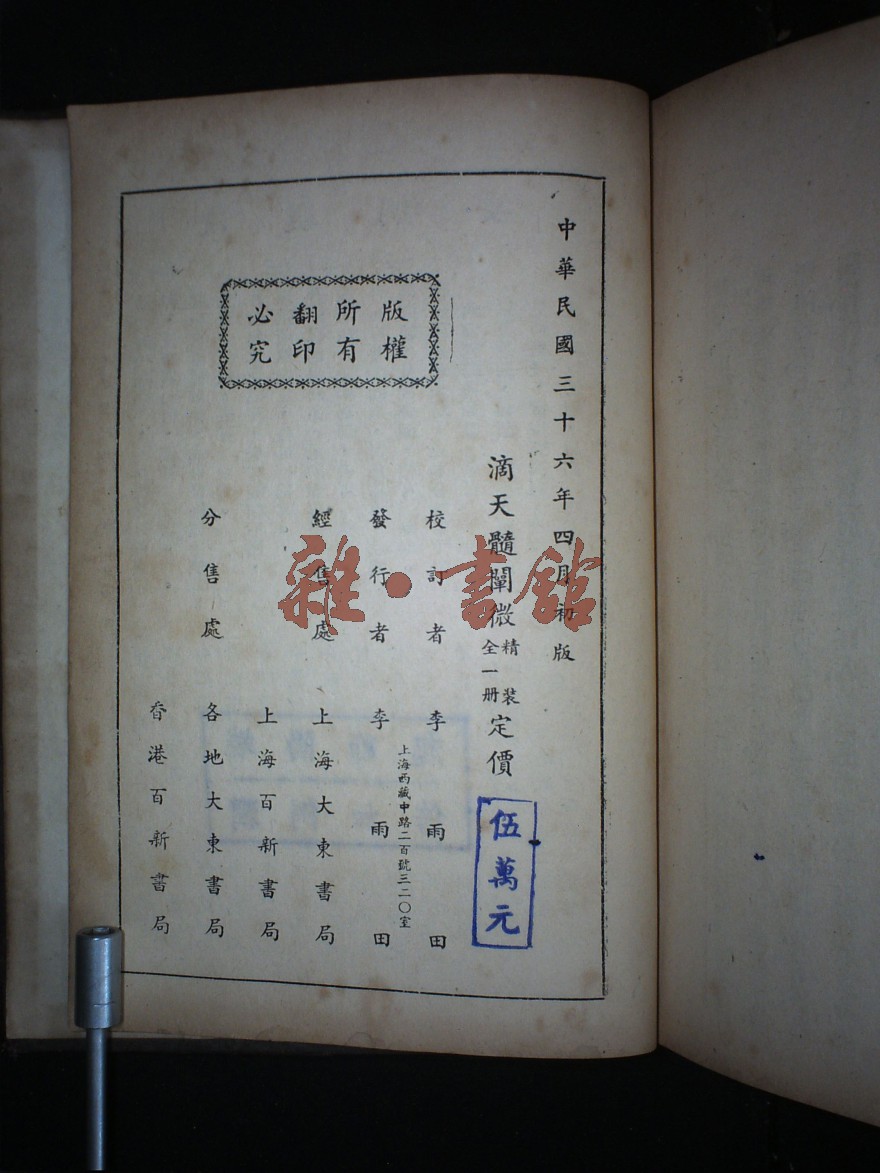 中華民國三十六年四月初版
滴天髓闡微
精裝
全一册
定價
伍萬元
校訂者 李雨田
上海西藏中路二百號三二〇室
發行者 李雨田
經售處 上海大東書局
上海百新書局
分售處 各地大東書局
香港百新書局
版權
所有
翻印
必究
雜·書館